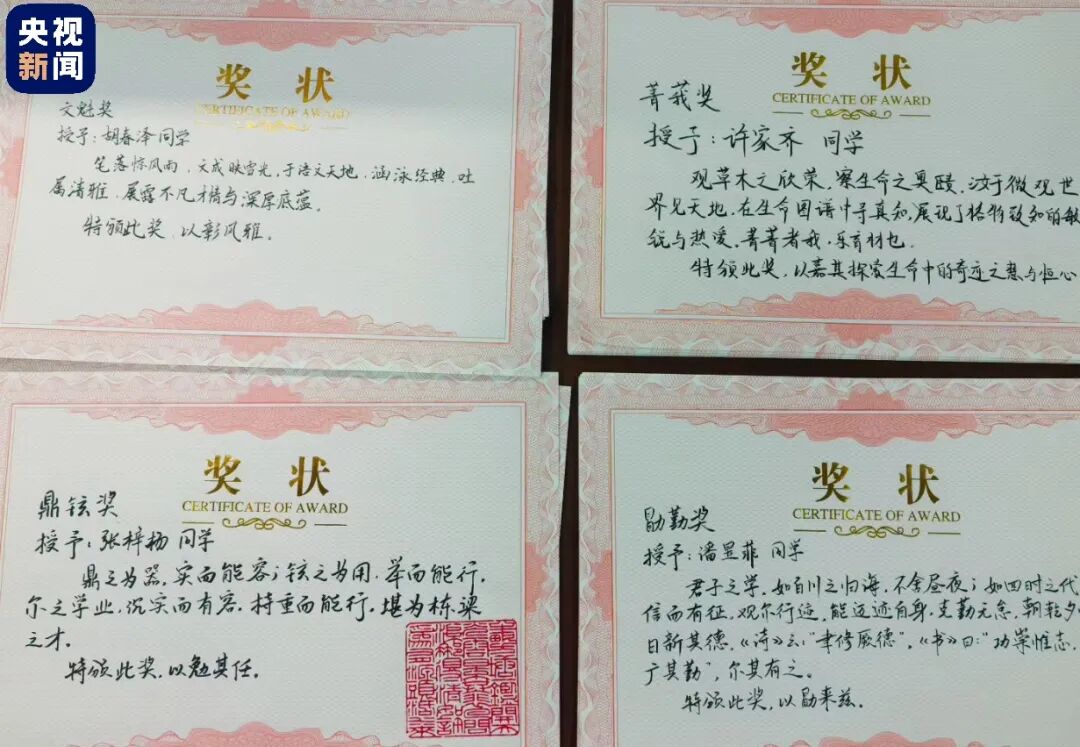 央视
新闻
奖状
CERTIFICATE OF AWARD
文魁奖
授予：胡春泽同学
笔落惊风雨，文成映雪光，于语文天地，涵泳经典，吐
属清雅，展露不凡才情与深厚底蕴。
特颁此奖，以彰风雅。
奖状
CERTIFICATE OF AWARD
菁莪奖
授予：许家齐 同学
观草木之欣荣，察生命之奥赜，汝于微观世
界见天地，在生命图谱中寻真知，展现了格物致知的敏
锐与热爱，菁菁者莪，乐育材也。
特颁此奖，以嘉其探索生命中的奇迹之慧与恒心
奖状
CERTIFICATE OF AWARD
鼎铉奖
授予：张梓杨 同学
鼎之为器，实而能容；铉之为用，举而能行，
尔之学业，沉实而有容，持重而能行，堪为栋梁
之才。
特颁此奖，以勉其任。
奖状
CERTIFICATE OF AWARD
勖勤奖
授予：潘昱菲 同学
君子之学，如百川之归海，不舍昼夜；如四时之代
信而有征，观尔行迹，能迈迹自身，克勤无怠，朝乾夕
日新其德，《诗》云："聿修厥德"，《书》曰："功崇惟志，
广其勤"，尔其有之。
特颁此奖，以勖来兹。